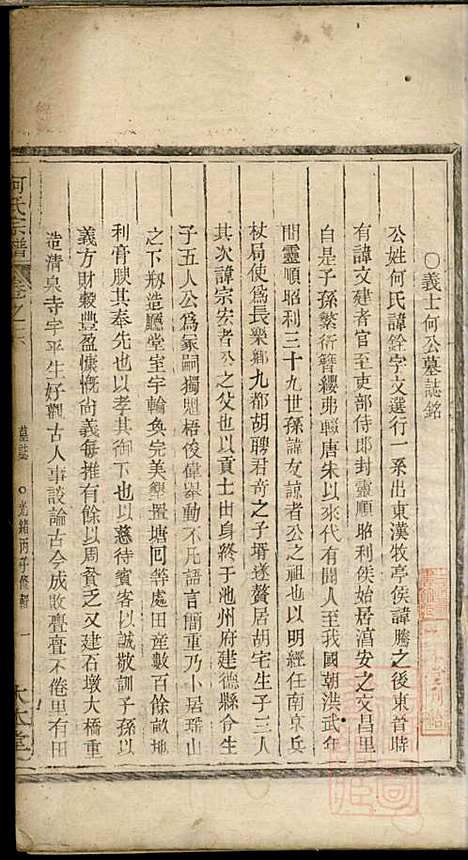 ○義士何公墓誌銘
公姓何氏諱銓字文選行一系出東漢牧亭侯諱騰之後東晉時
有諱文建者官至吏部侍郎封靈順昭利侯始居滔安之文昌里
自是子孫繁衍簪纓弗輟唐朱以來代有聞人至我國朝洪武年
間靈順昭利三十九世孫諱友諒者公之祖也以明經任南京兵
杖局使爲長樂鄉九都胡聘君奇之子壻遂贅居胡宅生子三人
其次諱宗安者公之父也以貢士出身終于池州府建德縣令生
子五人公爲冢嗣獨魁梧俊偉舉動不凡語言簡重乃卜居瑶山
之下剏造廳堂室宇輪奐完美塾置塘回等處田產數百餘畝地
利膏腴其奉先也以孝其御下也以慈待賓客以誠敬訓子孫以
義方財穀豐盈慷慨尚義每推有餘以周貧乏又建石墩大橋重
造清泉寺宇平生好觀古人事談論古今成敗亹亹不倦里有田
何氏宗譜
卷之六
墓誌
○光緒丙子修輯
一
大本堂